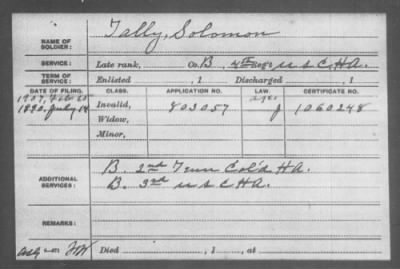 NAME OF SOLDIER: Tally, Solomon
SERVICE: Late rank, Co. B, 4th Reg't U S C H A.
TERM OF SERVICE: Enlisted , 1 Discharged , 1
DATE OF FILING. CLASS. APPLICATION NO. LAW. CERTIFICATE NO.
1907, Feb 25
1890, July 14 Invalid, 803057 J 1060248
Widow,
Minor,
ADDITIONAL SERVICES: B. 2nd Tenn Col'd H A.
B. 3rd U S C H A.
REMARKS:
Died , 1 , at